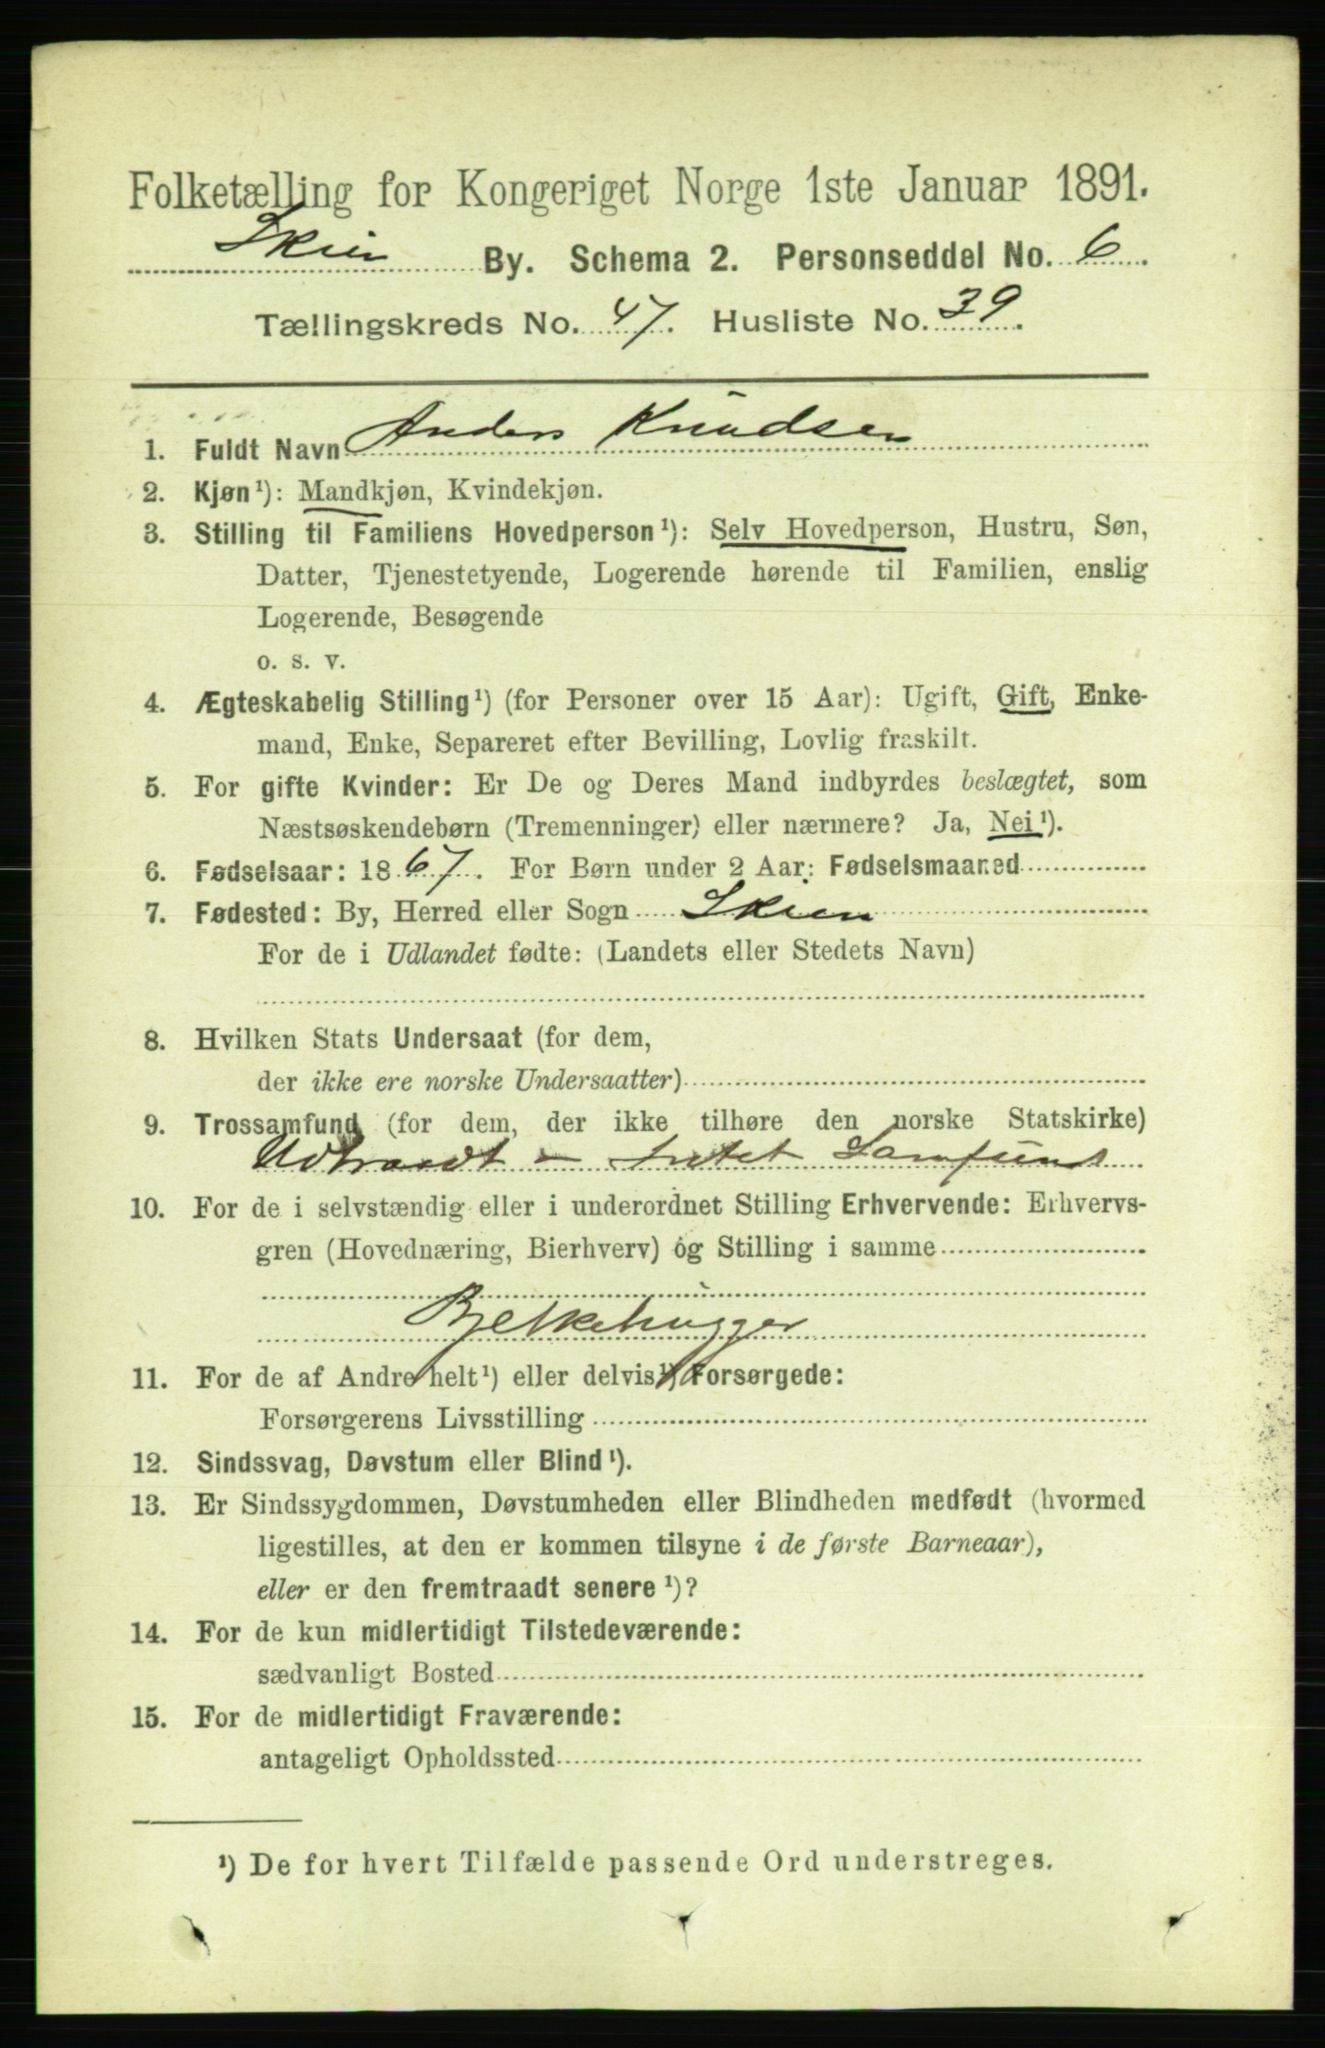 Folketælling for Kongeriget Norge 1ste Januar 1891.
Skien By. Schema 2. Personseddel No. 6.
Tællingskreds No. 47. Husliste No. 39.
1. Fuldt Navn Anders Knudsen
2. Kjøn¹): Mandkjøn, Kvindekjøn.
3. Stilling til Familiens Hovedperson¹): Selv Hovedperson, Hustru, Søn,
Datter, Tjenestetyende, Logerende hørende til Familien, enslig
Logerende, Besøgende
o. s. v.
4. Ægteskabelig Stilling¹) (for Personer over 15 Aar): Ugift, Gift, Enke-
mand, Enke, Separeret efter Bevilling, Lovlig fraskilt.
5. For gifte Kvinder: Er De og Deres Mand indbyrdes beslægtet, som
Næstsøskendebørn (Tremenninger) eller nærmere? Ja, Nei¹).
6. Fødselsaar: 1867. For Børn under 2 Aar: Fødselsmaaned
7. Fødested: By, Herred eller Sogn Skien
For de i Udlandet fødte: (Landets eller Stedets Navn)
8. Hvilken Stats Undersaat (for dem,
der ikke ere norske Undersaatter)
9. Trossamfund (for dem, der ikke tilhøre den norske Statskirke)
Udtraadt - Intet Samfund
10. For de i selvstændig eller i underordnet Stilling Erhvervende: Erhvervs-
gren (Hovednæring, Bierhverv) og Stilling i samme
Bjelkehugger
11. For de af Andre helt¹) eller delvis¹) Forsørgede:
Forsørgerens Livsstilling
12. Sindssvag, Døvstum eller Blind¹).
13. Er Sindssygdommen, Døvstumheden eller Blindheden medfødt (hvormed
ligestilles, at den er kommen tilsyne i de første Barneaar),
eller er den fremtraadt senere¹)?
14. For de kun midlertidigt Tilstedeværende:
sædvanligt Bosted
15. For de midlertidigt Fraværende:
antageligt Opholdssted
¹) De for hvert Tilfælde passende Ord understreges.